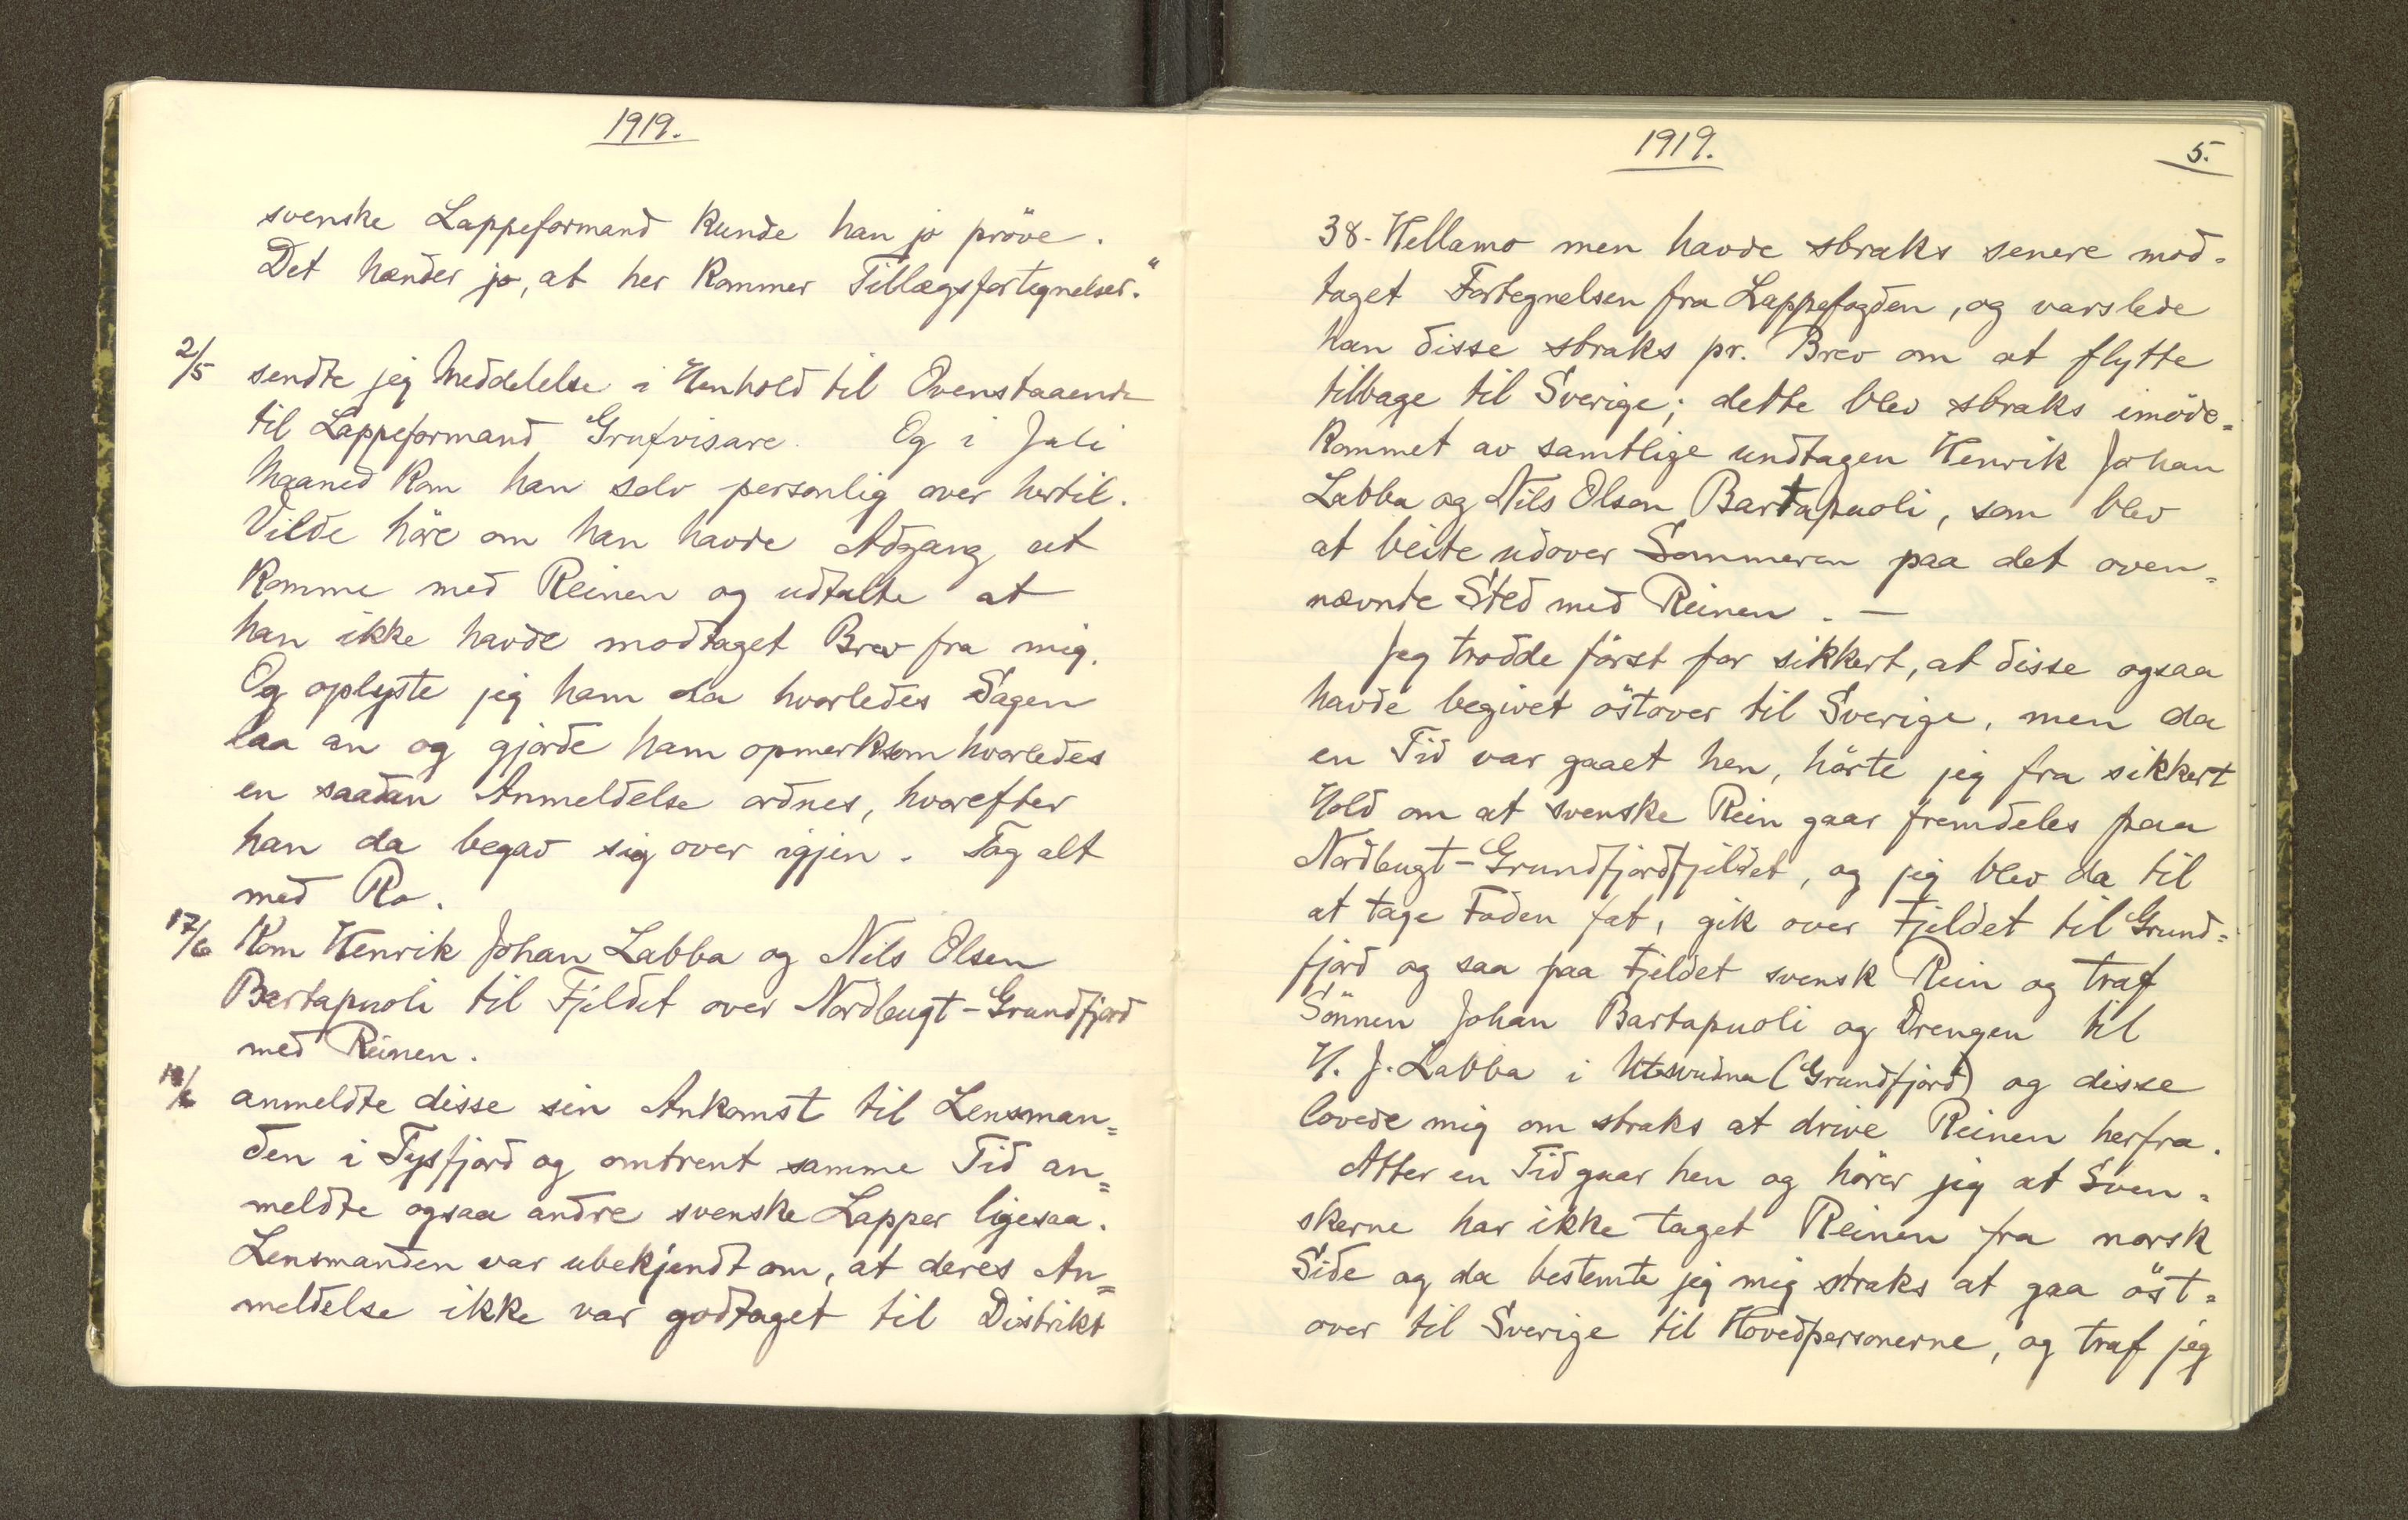 1919.
svenske Lappeformand kunde han jo pröve.
Det hænder jo, at her kommer Tillægsfortegnelser."
2/5 sendte jeg Meddelelse i Henhold til Ovenstaaende
til Lappeformand Grufvisare. Og i Juli
Maaned kom han selv personlig over hertil.
Vilde höre om han havde Adgang at
komme med Reinen og udtalte at
han ikke havde modtaget Brev fra mig.
Og oplyste jeg ham da hvorledes Sagen
laa an og gjorde ham opmerksom hvorledes
en saadan Anmeldelse ordnes, hvorefter
han da begav sig over igjen. Tog alt
med Ro.
17/6 Kom Henrik Johan Labba og Nils Olsen
Bartapuoli til Fjeldet over Nordbugt-Grundfjord
med Reinen.
18/6 anmeldte disse sin Ankomst til Lensman=
den i Tysfjord og omtrent samme Tid an=
meldte ogsaa andre svenske Lapper ligesaa.
Lensmanden var ubekjendt om, at deres An=
meldelse ikke var godtaget til Distrikt
1919.
5.
38-Hellamo men havde straks senere mod=
taget Fortegnelsen fra Lappefogden, og varslede
han disse straks pr. Brev om at flytte
tilbage til Sverige; dette blev straks imöde=
kommet av samtlige undtagen Henrik Johan
Labba og Nils Olson Bartapuoli, som blev
at beite udover Sommeren paa det oven=
nævnte Sted med Reinen. —
Jeg trodde först for sikkert, at disse ogsaa
havde begivet östover til Sverige, men da
en Tid var gaaet hen, hörte jeg fra sikkert
Hold om at svenske Rein gaar fremdeles paa
Nordbugt-Grundfjordfjeldet, og jeg blev da til
at tage Foden fat, gik over Fjeldet til Grund=
fjord og saa paa Fjeldet svensk Rein og traf
Sönnen Johan Bartapuoli og Drengen til
H. J. Labba i (Grundfjord) og disse
lovede mig om straks at drive Reinen herfra.
Atter en Tid gaar hen og hörer jeg at Sven=
skerne har ikke taget Reinen fra norsk
Side og da bestemte jeg mig straks at gaa öst=
over til Sverige til Hovedpersonerne, og traf jeg